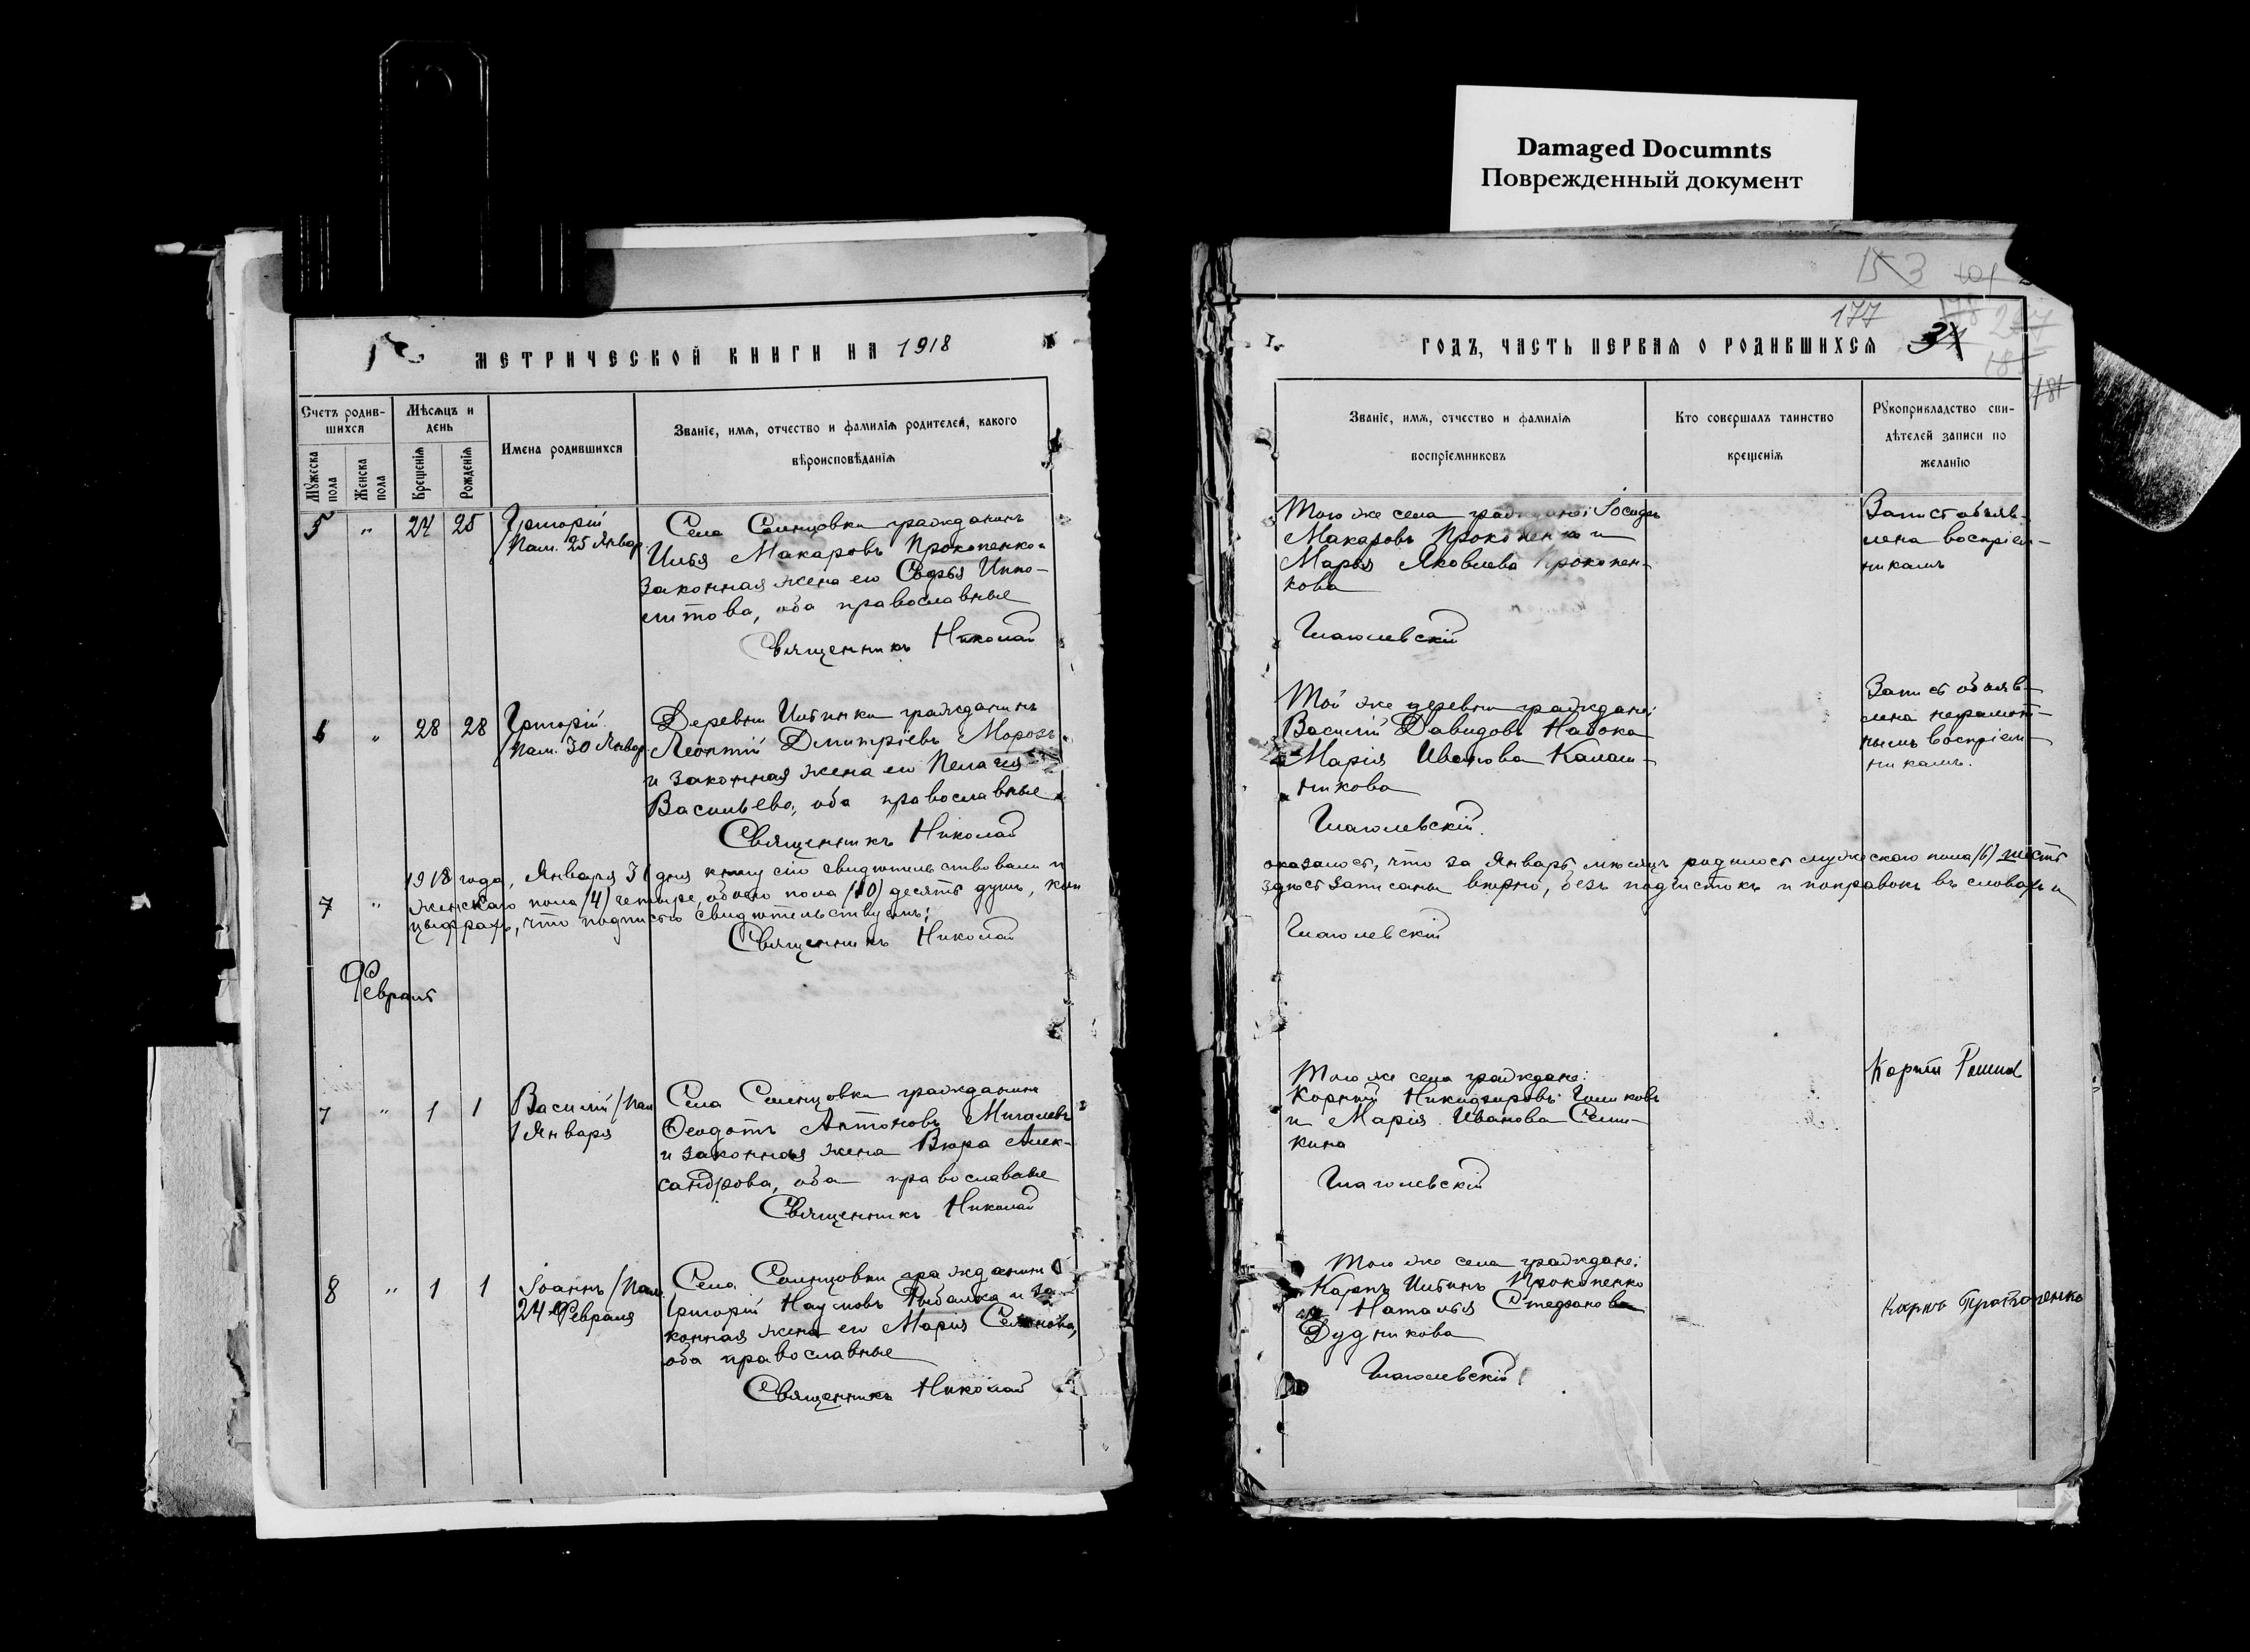 Damaged Documnts
Поврежденный документ
МЕТРИЧЕСКОЙ КНИГИ НА 1918
Счетъ родив-
шихся
Мужеска пола
Женска пола
Мѣсяцъ и
день
Крещенія
Рожденія
Имена родившихся
Званіе, имя, отчество и фамилія родителей, какого
вѣроисповѣданія
5 " 24 25 Григорій
/Пам. 25 Январ.
Села Солнцовки гражданинъ
Илья Макаровъ Прокопенко и
законная жена его Софья Иппо-
литова, оба православные
Священникъ Николай
6 " 28 28 Григорій
/Пам. 30 Январ.
Деревни Ильинки гражданинъ
Леонтій Дмитріевъ Морозъ
и законная жена его Пелагія
Васильева, оба православные
Священникъ Николай
1918 года, Января 31 дня книгу сію свидѣтельствовали и
7 " женскаго пола /4/ четыре, обоего пола /10/ десять душъ, кои
цыфрахъ, что подписью свидѣтельствуемъ:
Священникъ Николай
Февраль
7 " 1 1 Василій /Пам.
1 Января
Села Солнцовки гражданинъ
Ѳеодотъ Антоновъ Мигалевъ
и законная жена Вѣра Алек-
сандрова, оба православные
Священникъ Николай
8 " 1 1 Іоаннъ /Пам.
24 Февраля
Села Солнцовки гражданинъ
Григорій Наумовъ Рыбалка и за-
конная жена его Марія Семенова,
оба православные
Священникъ Николай
153 101
177 178 277
31
185
181
ГОДЪ, ЧАСТЬ ПЕРВАЯ О РОДИВШИХСЯ
Званіе, имя, отчество и фамилія
воспріемниковъ
Кто совершалъ таинство
крещенія
Рукоприкладство сви-
дѣтелей записи по
желанію
Того же села граждане: Іосифъ
Макаровъ Прокопенко и
Марья Яковлева Прокопен-
кова
Глаголевскій
Запись объяв-
лена воспріем-
никамъ
Той же деревни граждане:
Василій Давидовъ Набока
и Марія Иванова Калаш-
никова
Глаголевскій
Запись объяв-
лена неграмот-
нымъ воспріем-
никамъ.
оказалось, что за Январь мѣсяцъ родилось мужескаго пола /6/ шесть
здѣсь записаны вѣрно, безъ подчистокъ и поправокъ въ словахъ и
Глаголевскій
Того же села граждане:
Корній Никифоровъ Голиковъ
и Марія Иванова Семи-
кина
Глаголевскій
Корній
Того же села граждане:
Карпъ Ильинъ Прокопенко
и Наталья Стефанова
Дудникова
Глаголевскій
Карпъ Прокопенко